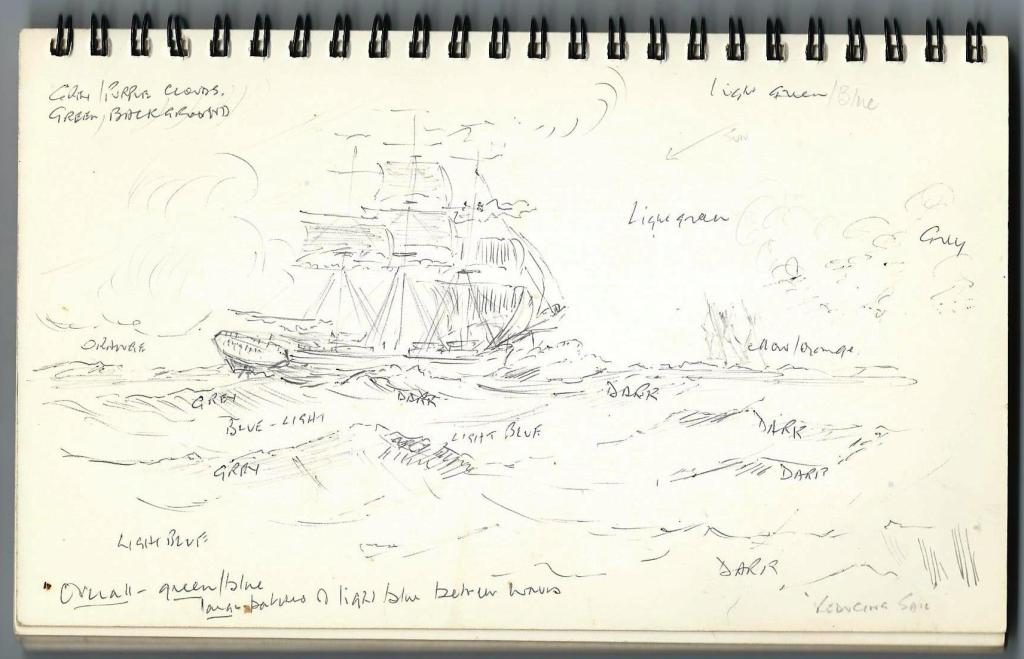 GREY/PURPLE CLOUDS.
GREEN BACKGROUND
light green/Blue
SUN
Light green
Grey
ORANGE
yellow/orange
GREY
DARK
DARK
BLUE-LIGHT
LIGHT BLUE
DARK
GREY
DARK
LIGHT BLUE
DARK
Overall - green/blue
large patches of light blue between waves
REDUCING SAIL